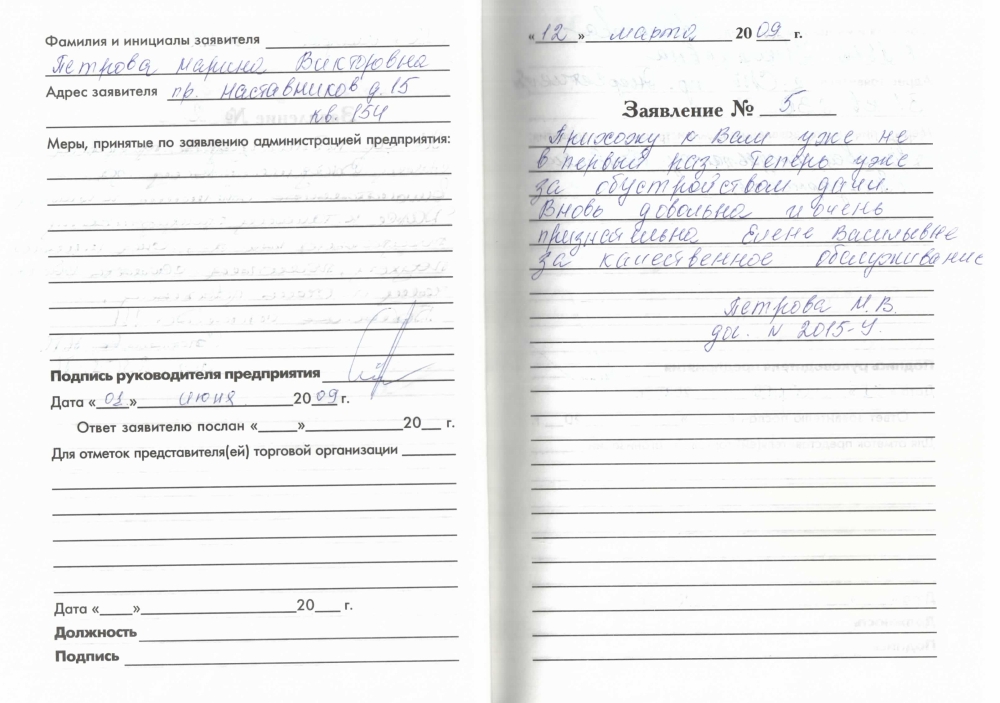 Фамилия и инициалы заявителя
Петрова Марина Викторовна
Адрес заявителя пр. Наставников д. 15
кв. 154
Меры, принятые по заявлению администрацией предприятия:
Подпись руководителя предприятия
Дата «01» июня 2009 г.
Ответ заявителю послан «___» ___ 20__ г.
Для отметок представителя(ей) торговой организации
Дата «___» ___ 20__ г.
Должность
Подпись
«12» марта 2009 г.
Заявление № 5
Прихожу к Вам уже не
в первый раз. Теперь уже
за обустройством дачи.
Вновь довольна и очень
признательна Елене Васильевне
за качественное обслуживание
Петрова М.В.
дог. N 2015-Ч.